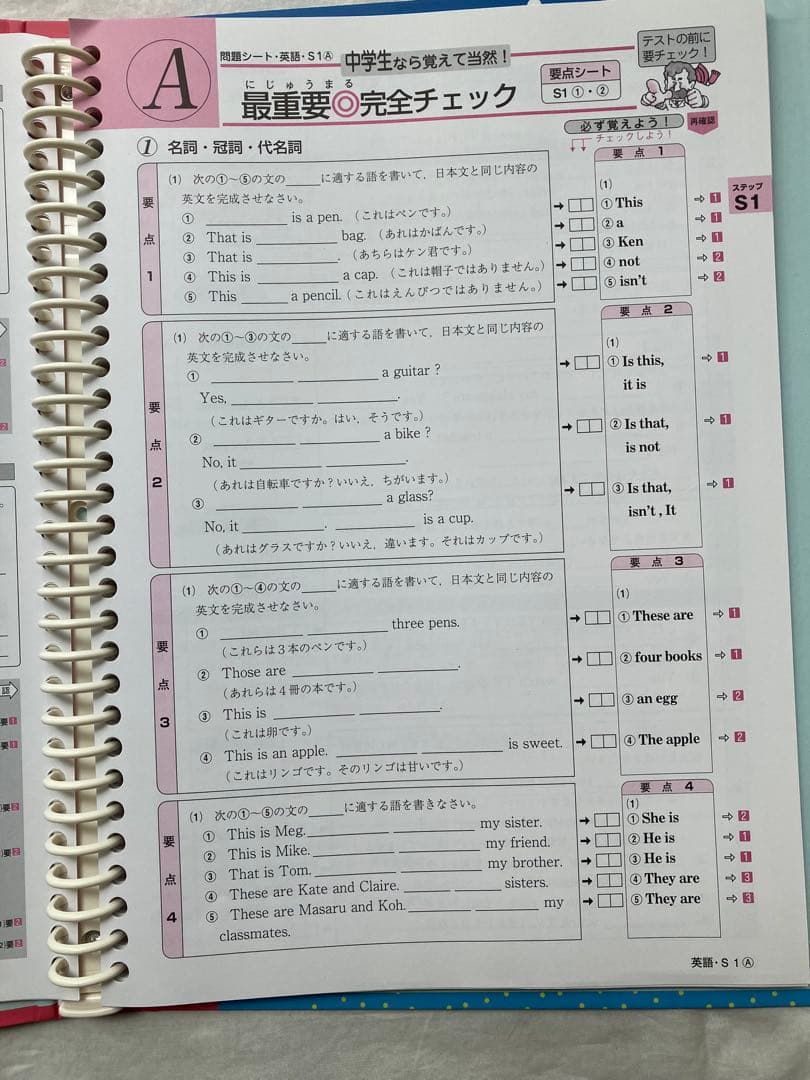 A
問題シート・英語・S1Ⓐ 中学生なら覚えて当然！
にじゅうまる
最重要◎完全チェック
要点シート
S1 ①・②
テストの前に
要チェック！
必ず覚えよう！
再確認
チェックしよう！
ステップ
S1
① 名詞・冠詞・代名詞
要点1
(1) 次の①～⑤の文の_____に適する語を書いて，日本文と同じ内容の
英文を完成させなさい。
① __________ is a pen.（これはペンです。）
② That is __________ bag.（あれはかばんです。）
③ That is __________.（あちらはケン君です。）
④ This is __________ a cap.（これは帽子ではありません。）
⑤ This ________ a pencil.（これはえんぴつではありません。）
要点1
(1)
① This ⇨ 1
② a ⇨ 1
③ Ken ⇨ 1
④ not ⇨ 2
⑤ isn't ⇨ 2
要点2
(1) 次の①～③の文の_____に適する語を書いて，日本文と同じ内容の
英文を完成させなさい。
① __________ __________ a guitar ?
Yes, __________ __________.
（これはギターですか。はい，そうです。）
② __________ __________ a bike ?
No, it __________ __________.
（あれは自転車ですか？いいえ，ちがいます。）
③ __________ __________ a glass?
No, it __________. __________ is a cup.
（あれはグラスですか？いいえ，違います。それはカップです。）
要点2
(1)
① Is this, ⇨ 1
it is
② Is that, ⇨ 1
is not
③ Is that, ⇨ 1
isn't , It
要点3
(1) 次の①～④の文の_____に適する語を書いて，日本文と同じ内容の
英文を完成させなさい。
① __________ __________ three pens.
（これらは３本のペンです。）
② Those are __________ __________.
（あれらは４冊の本です。）
③ This is __________ __________.
（これは卵です。）
④ This is an apple. __________ __________ is sweet.
（これはリンゴです。そのリンゴは甘いです。）
要点3
(1)
① These are ⇨ 1
② four books ⇨ 1
③ an egg ⇨ 2
④ The apple ⇨ 2
要点4
(1) 次の①～⑤の文の_____に適する語を書きなさい。
① This is Meg. __________ __________ my sister.
② This is Mike. __________ __________ my friend.
③ That is Tom. __________ __________ my brother.
④ These are Kate and Claire. ________ ________ sisters.
⑤ These are Masaru and Koh. ________ ________ my
classmates.
要点4
(1)
① She is ⇨ 2
② He is ⇨ 1
③ He is ⇨ 1
④ They are ⇨ 3
⑤ They are ⇨ 3
英語・S1Ⓐ